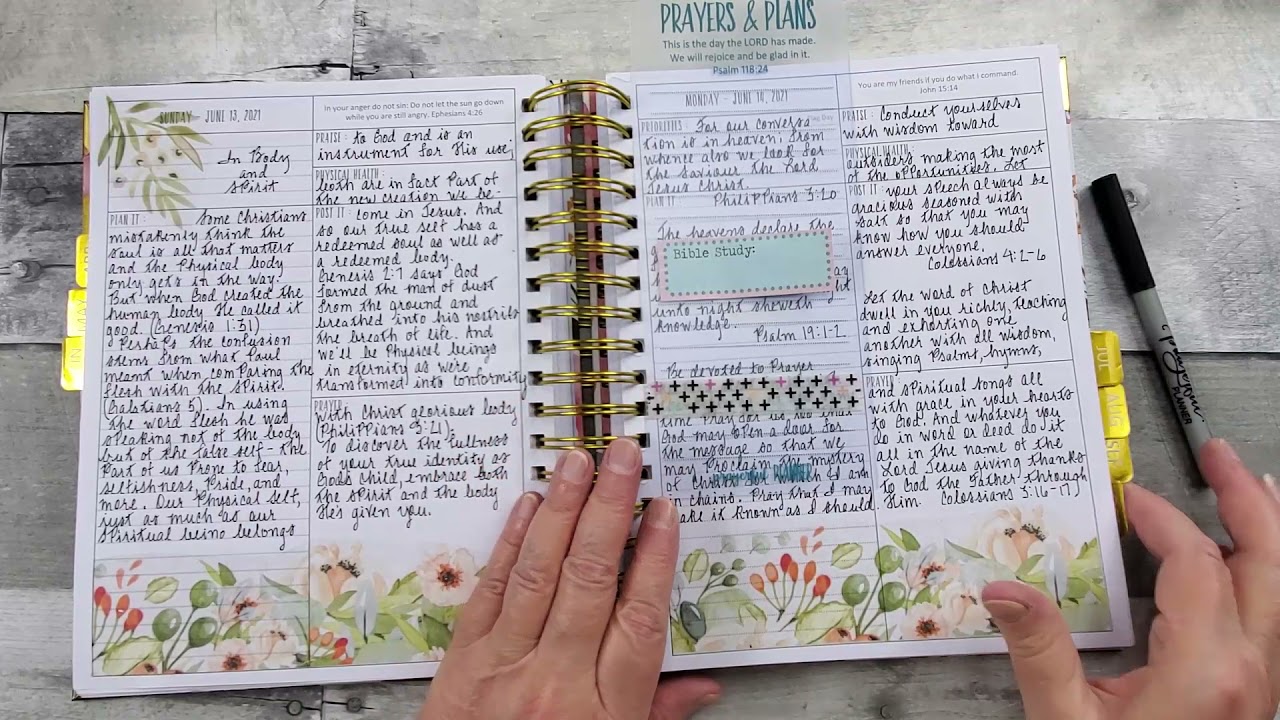 PRAYERS & PLANS
This is the day the LORD has made.
We will rejoice and be glad in it.
Psalm 118:24
SUNDAY - JUNE 13, 2021
In Body
and
Spirit
PLAN IT: Some Christians
mistakenly think the
soul is all that matters
and the Physical body
only gets in the way.
But when God created the
human body He called it
good. (Genesis 1:31)
Perhaps the confusion
stems from what Paul
meant when comparing the
flesh with the Spirit.
(Galatians 5). In using
the word flesh he was
speaking not of the body
but of the false self - the
Part of us Prone to fear,
selfishness, Pride, and
more. Our Physical self,
just as much as our
spiritual being belongs
In your anger do not sin: Do not let the sun go down
while you are still angry. Ephesians 4:26
PRAISE: to God and is an
instrument for His use,
PHYSICAL HEALTH:
both are in fact Part of
the new creation we be-
POST IT: come in Jesus. And
so our true self has a
redeemed soul as well as
a redeemed body.
Genesis 2:7 says God
formed the man of dust
from the ground and
breathed into his nostrils
the breath of life. And
we'll be Physical beings
in eternity as were
transformed into conformity
PRAYER:
with Christ glorious body
(Philippians 3:21).
To discover the fullness
of your true identity as
Gods Child, embrace both
the spirit and the body
He's given you.
MONDAY - JUNE 14, 2021
Flag Day
PRIORITIES: For our conversa
tion is in heaven; from
whence also we look for
the Saviour the Lord
Jesus Christ.
PLAN IT: Philippians 3:20
The heavens declare the
Bible Study:
unto night sheweth
knowledge.
Psalm 19:1-2
Be devoted to Prayer
time Pray for us too that
God may open a door for
the message so that we
may Proclaim the mystery
of Christ for which I am
in chains. Pray that I may
make it known as I should.
You are my friends if you do what i command.
John 15:14
PRAISE: Conduct yourselves
with wisdom toward
PHYSICAL HEALTH:
outsiders, making the most
of the opportunities. Let
POST IT: your speech always be
gracious seasoned with
salt so that you may
know how you should
answer everyone.
Colossians 4:2-6
Let the word of Christ
dwell in you richly, teaching
and exhorting one
another with all wisdom,
singing Psalms, hymns,
PRAYER:
and spiritual songs all
with grace in your hearts
to God. And whatever you
do in word or deed do it
all in the name of the
Lord Jesus giving thanks
to God the Father through
Him. Colossians 3:16-17
MAY
JUL
AUG
PLANNER